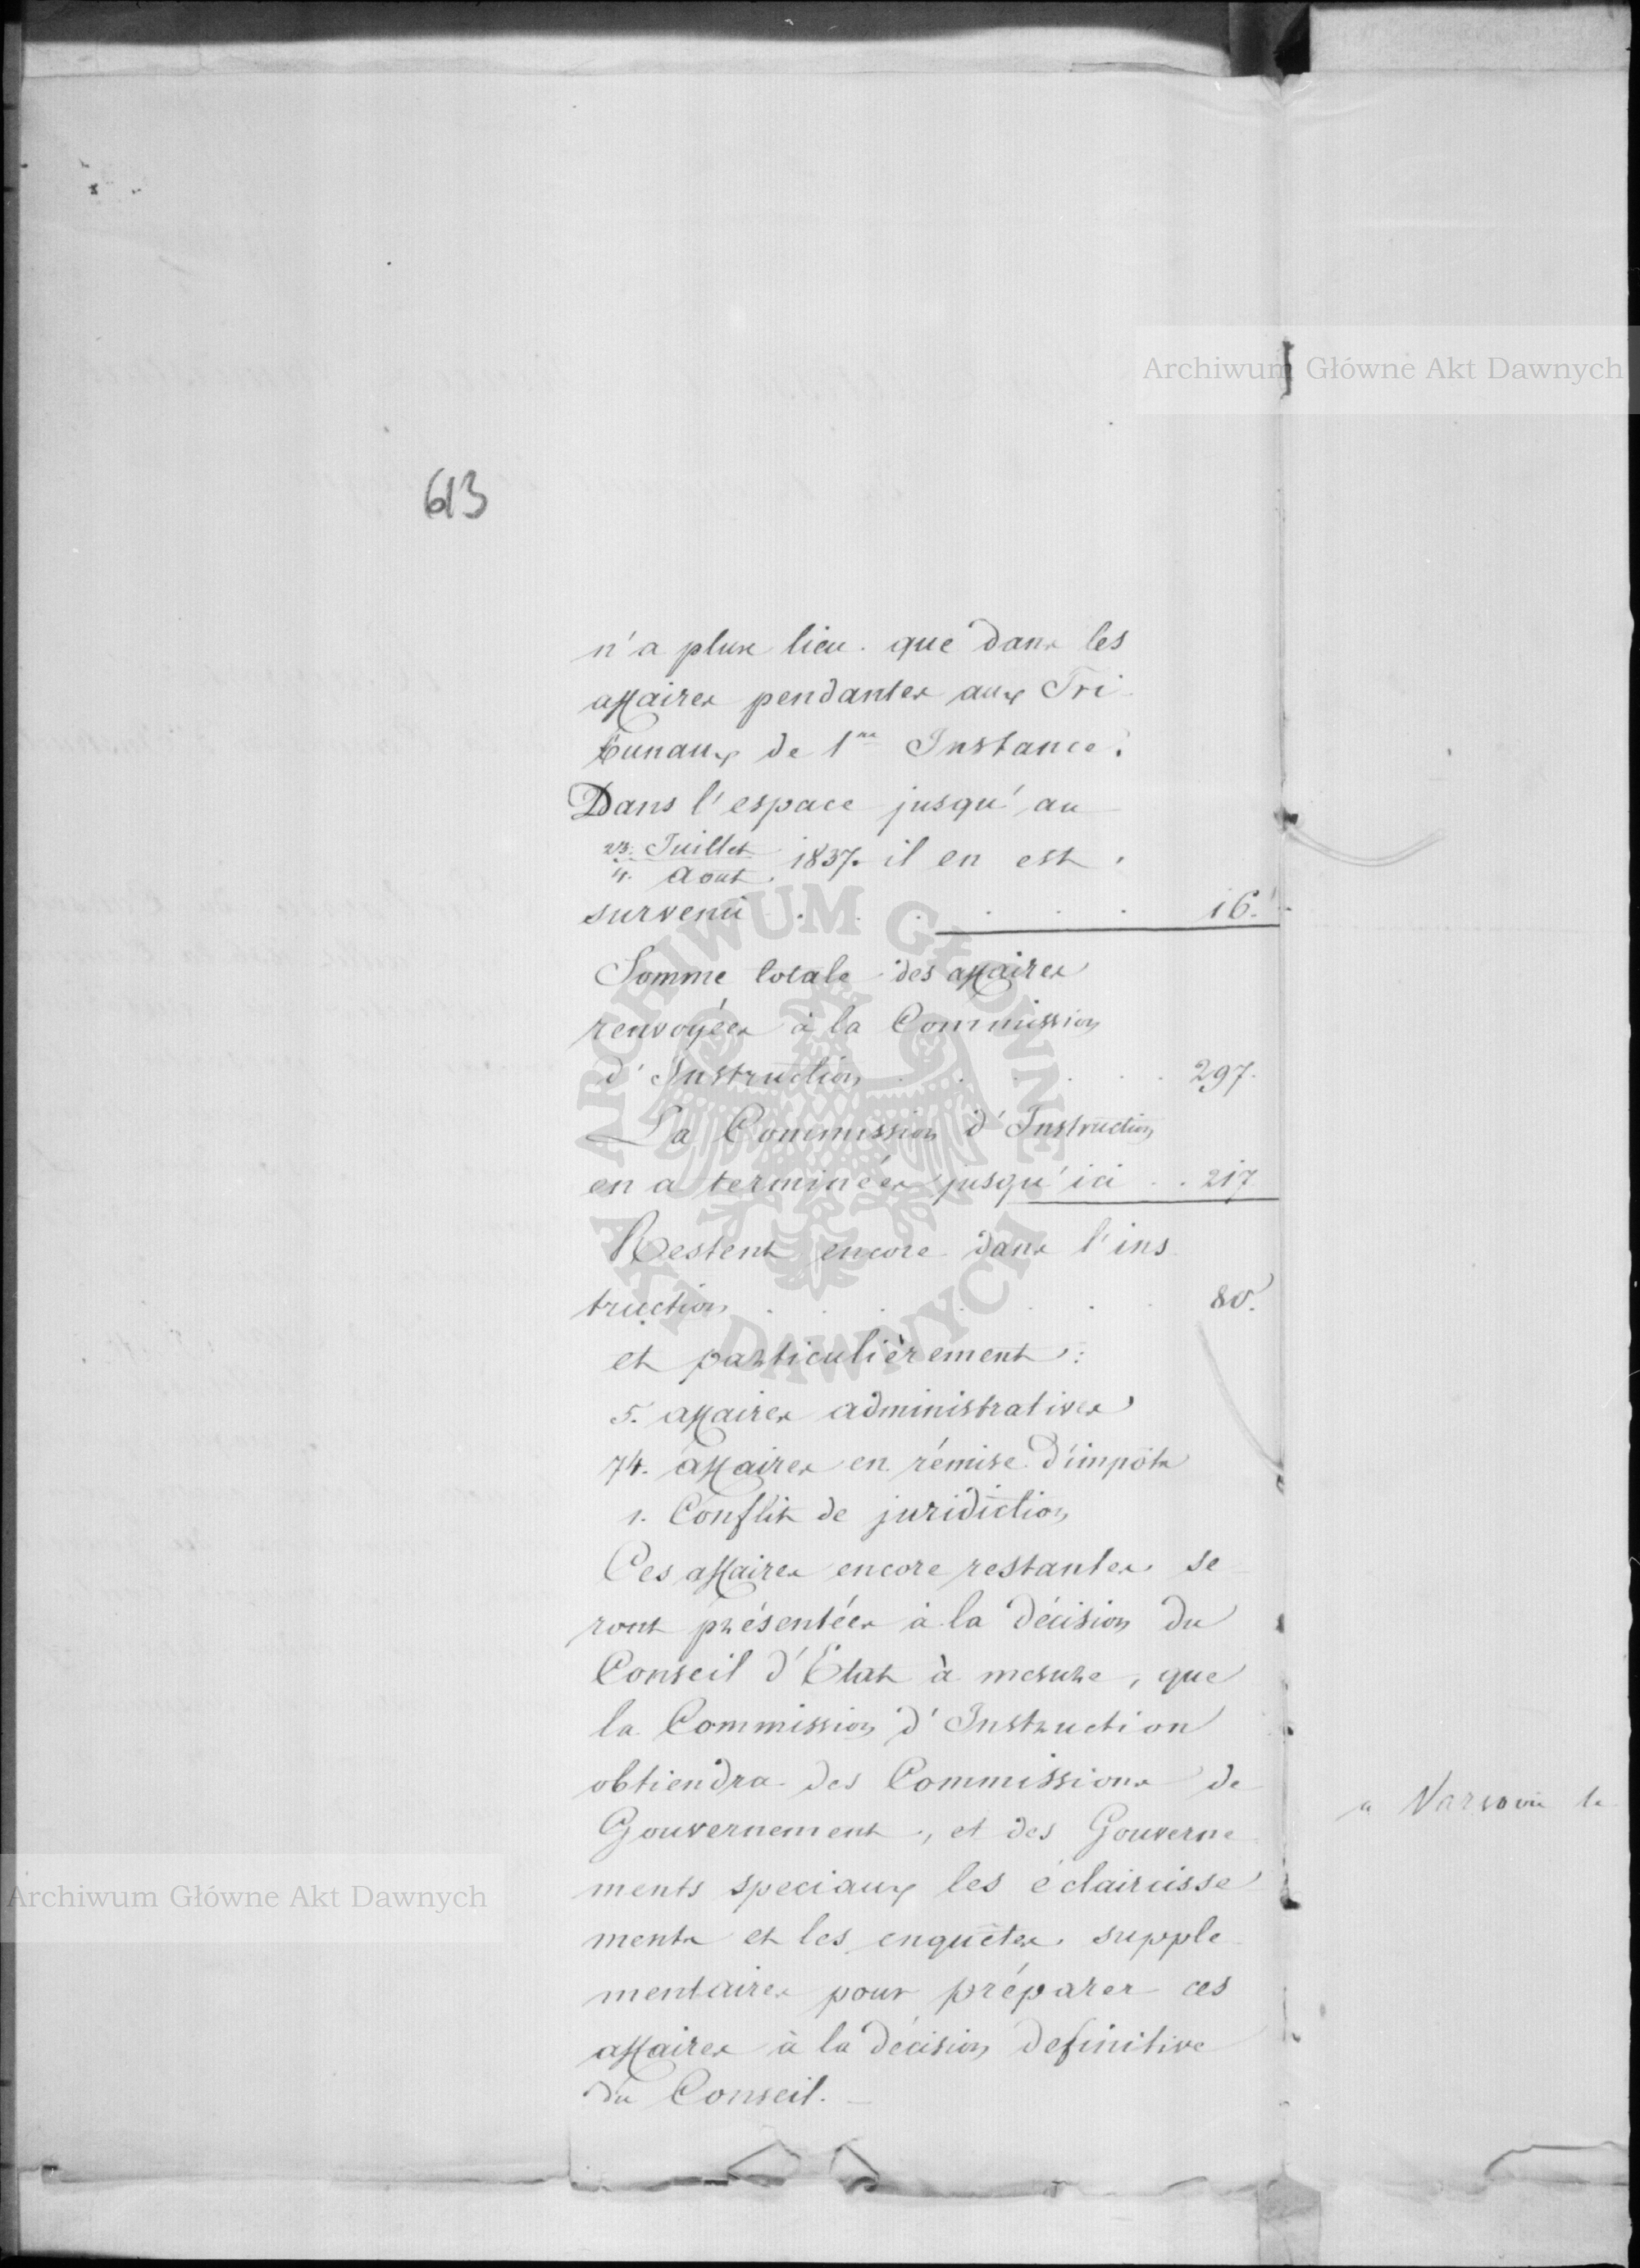 Archiwum Główne Akt Dawnych
613
n'a plus lieu que dans les
affaires pendantes aux Tri
bunaux de 1re Instance.
Dans l'espace jusqu'au
23. Juillet
4. Aout 1837. il en est
survenu . . . . . . 16.
Somme totale des affaires
renvoyées à la Commission
d'Instruction . . . . . 297.
La Commission d'Instruction
en a terminées jusqu'ici . . 217
Restent encore dans l'ins
truction . . . . . . 80.
et particulièrement:
5. affaires administratives
74. affaires en rémise d'impôts
1. Conflit de juridiction
Ces affaires encore restantes se
ront présentées à la décision du
Conseil d'Etat à mesure, que
la Commission d'Instruction
obtiendra des Commissions de
Gouvernement, et des Gouverne
ments speciaux les éclaircisse
ments et les enquêtes supple
mentaires pour préparer ces
affaires à la décision definitive
du Conseil. –
a Varsovie le
Archiwum Główne Akt Dawnych
ARCHIWUM GŁÓWNE AKT DAWNYCH